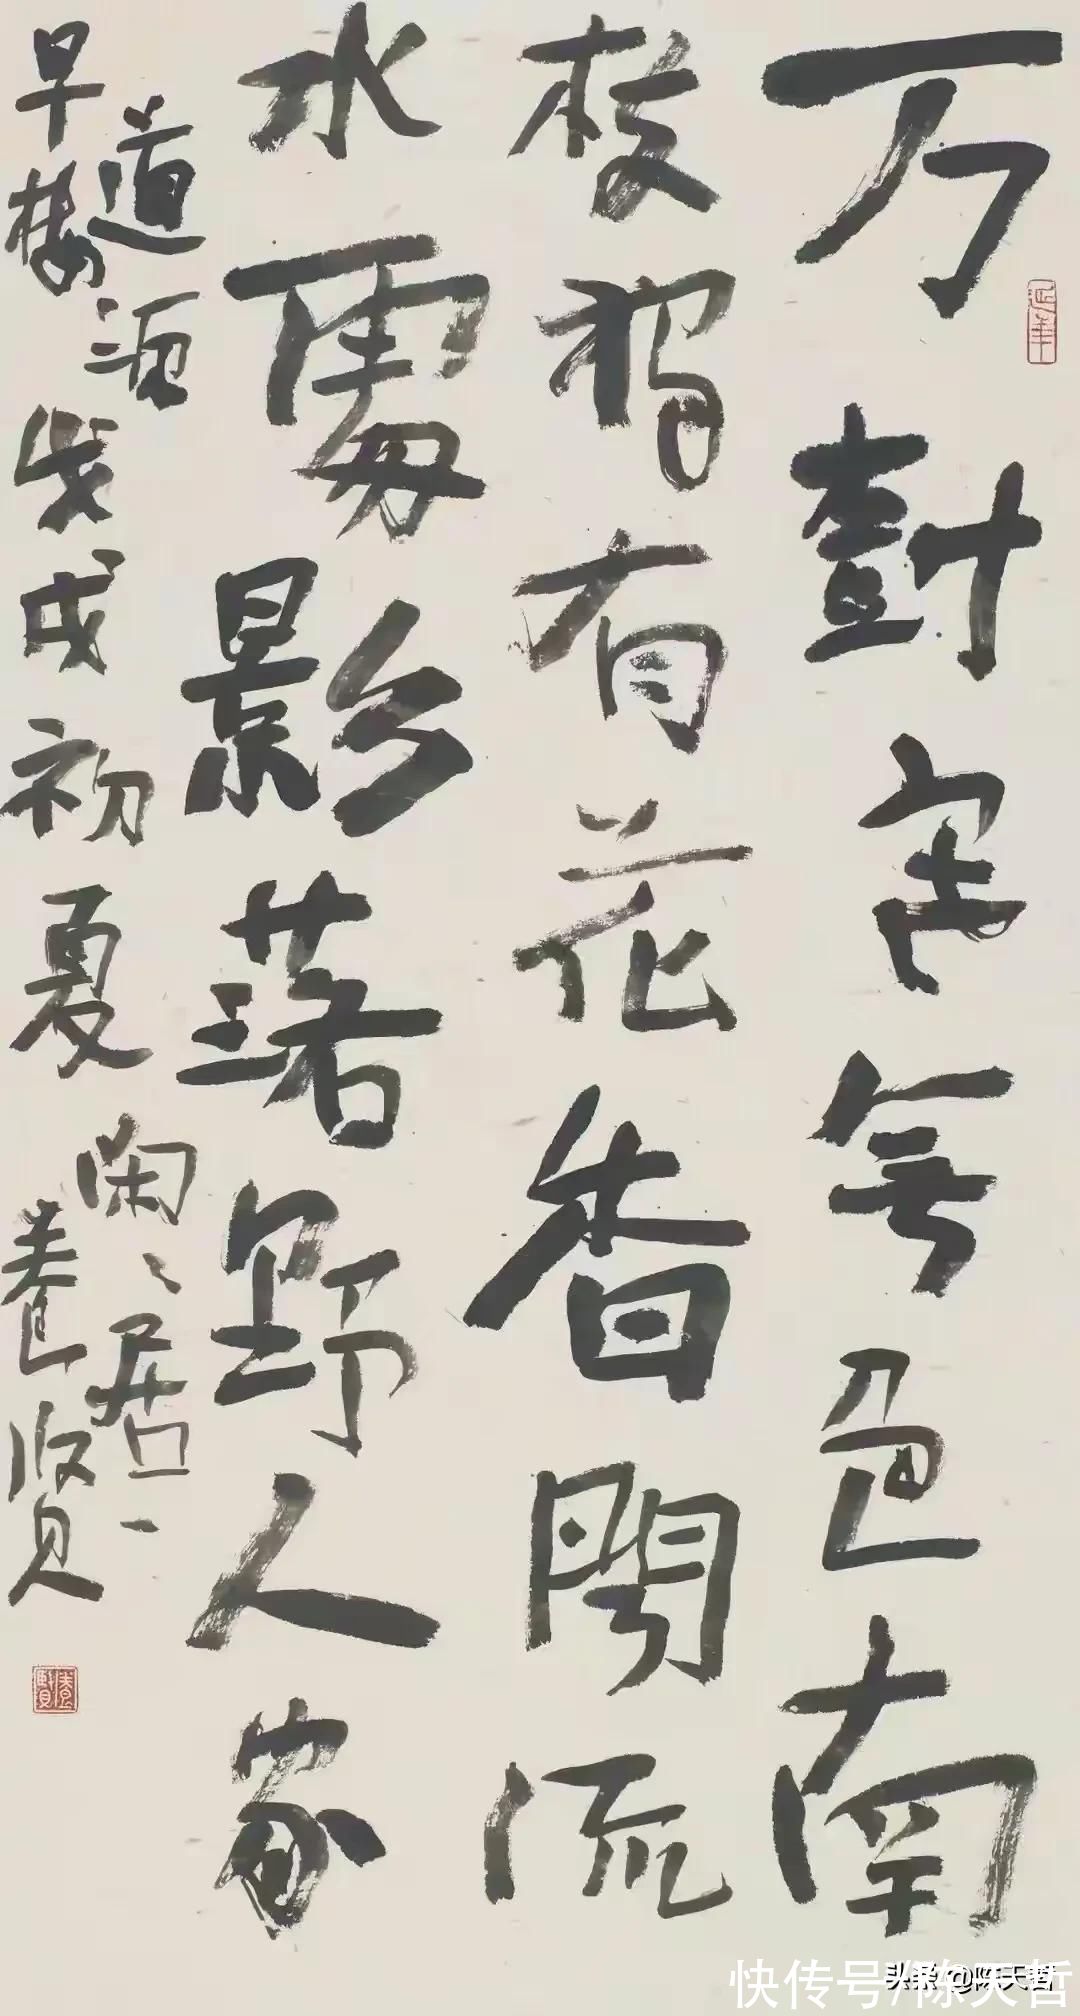 万樹寒無色南
枝獨有花香聞流
水處影落野人家
道源
早梅戊戌初夏
閑〻居
養賢
延年
快传号/陈天哲
头条 @陈天哲